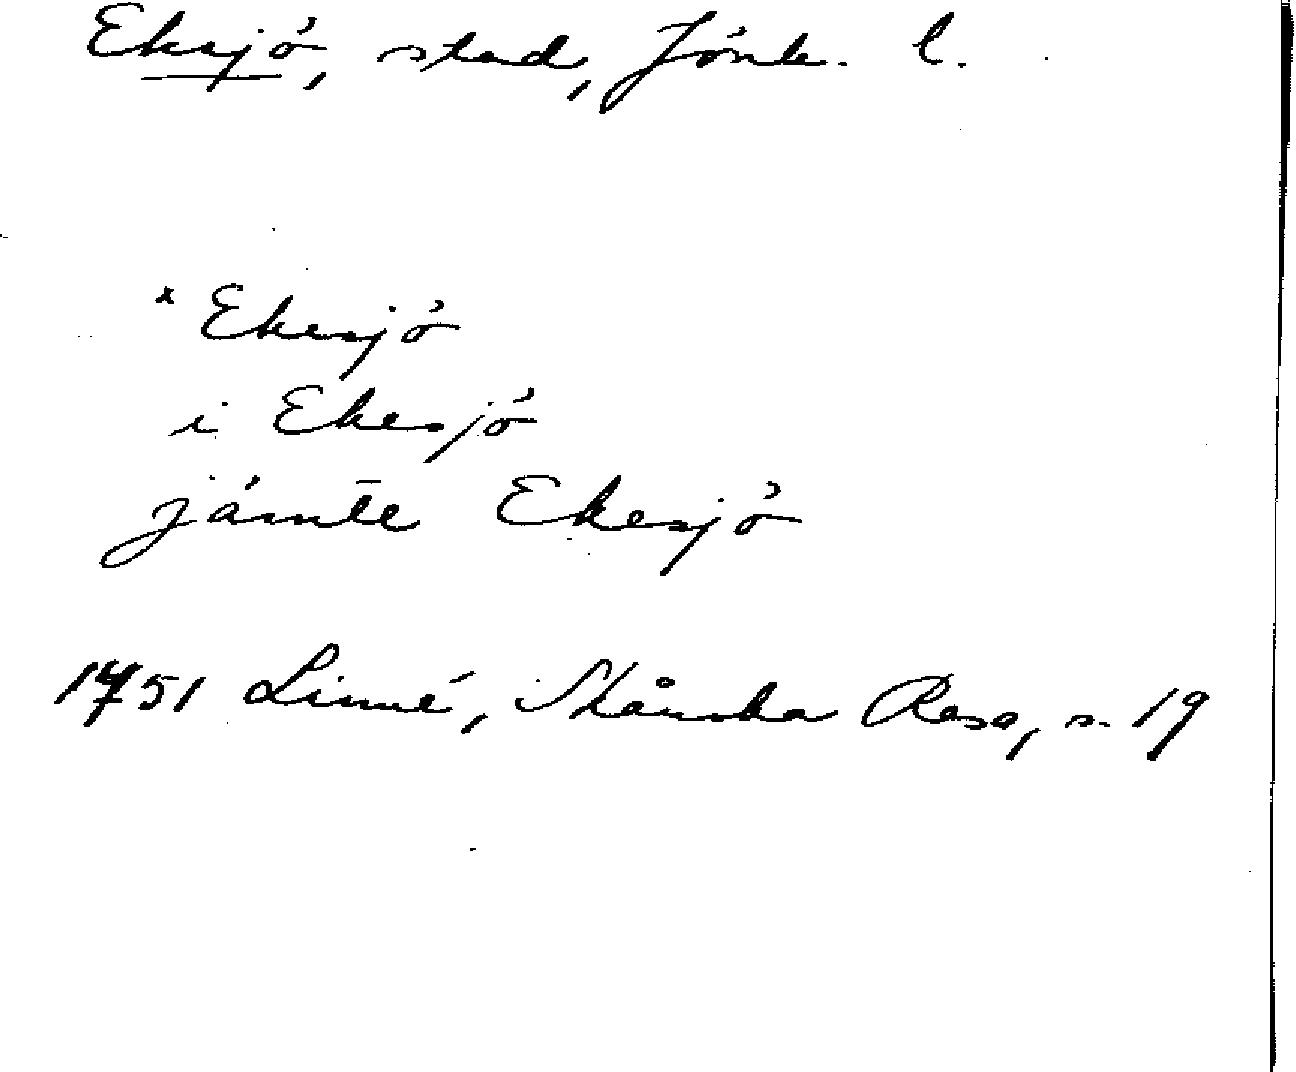 Eksjö, stad, Jönk. l.
x Ekesjö
i Ekesjö
jämte Ekesjö
1751 Linné, Skånska Resa, s. 19